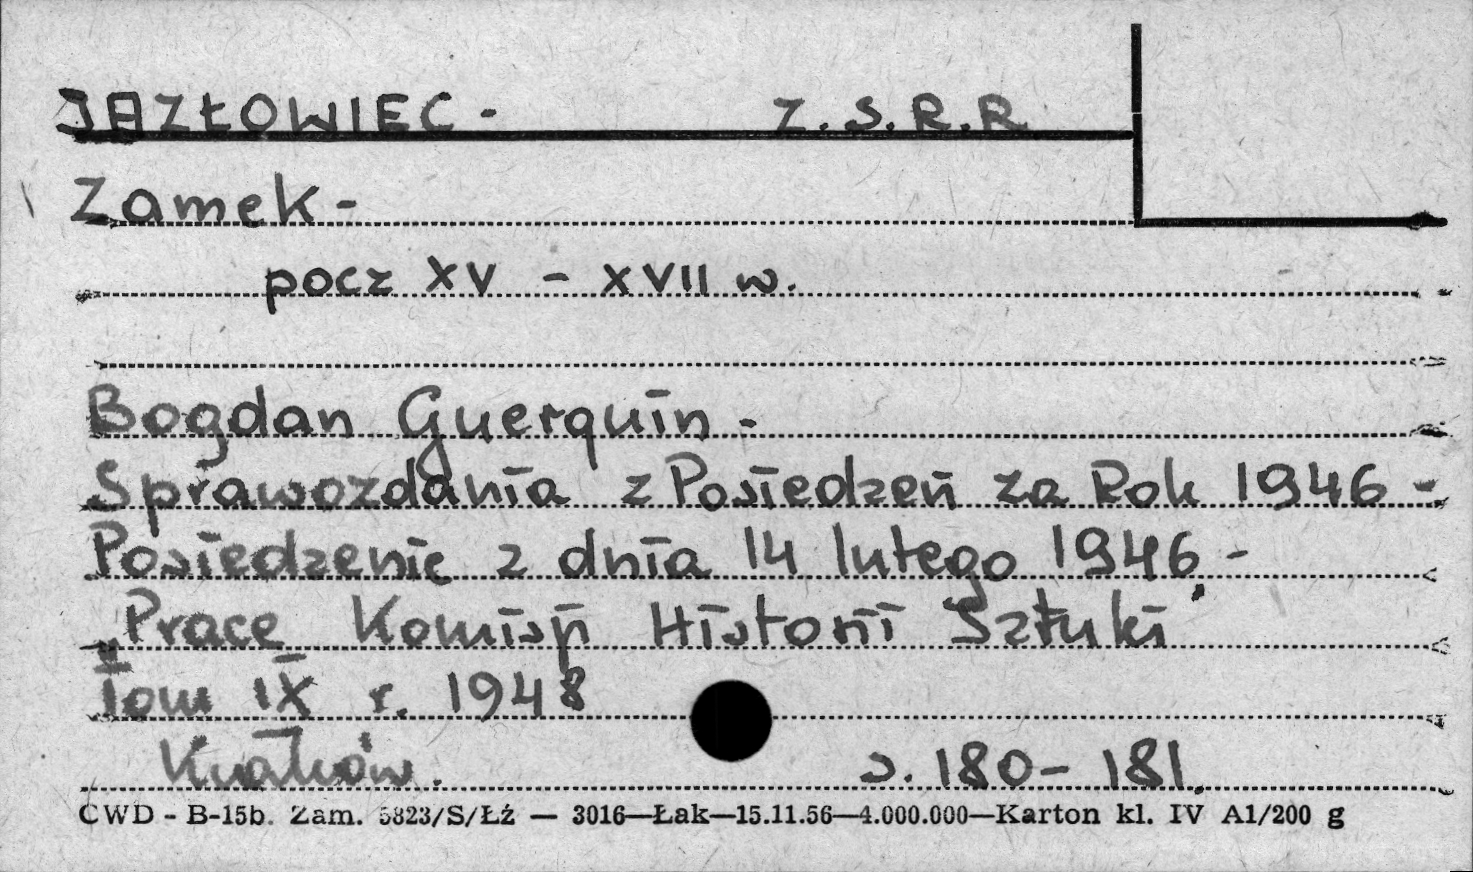 JAZŁOWIEC - Z.S.R.R
Zamek -
pocz XV - XVII w.
Bogdan Guerquin -
Sprawozdania z Posiedzeń za Rok 1946 -
Posiedzenie z dnia 14 lutego 1946 -
"Prace Komisji Historii Sztuki"
Tom IX r. 1948
Kraków. s. 180-181.
CWD - B-15b. Zam. 5823/S/Łź — 3016—Łak—15.11.56—4.000.000—Karton kl. IV A1/200 g